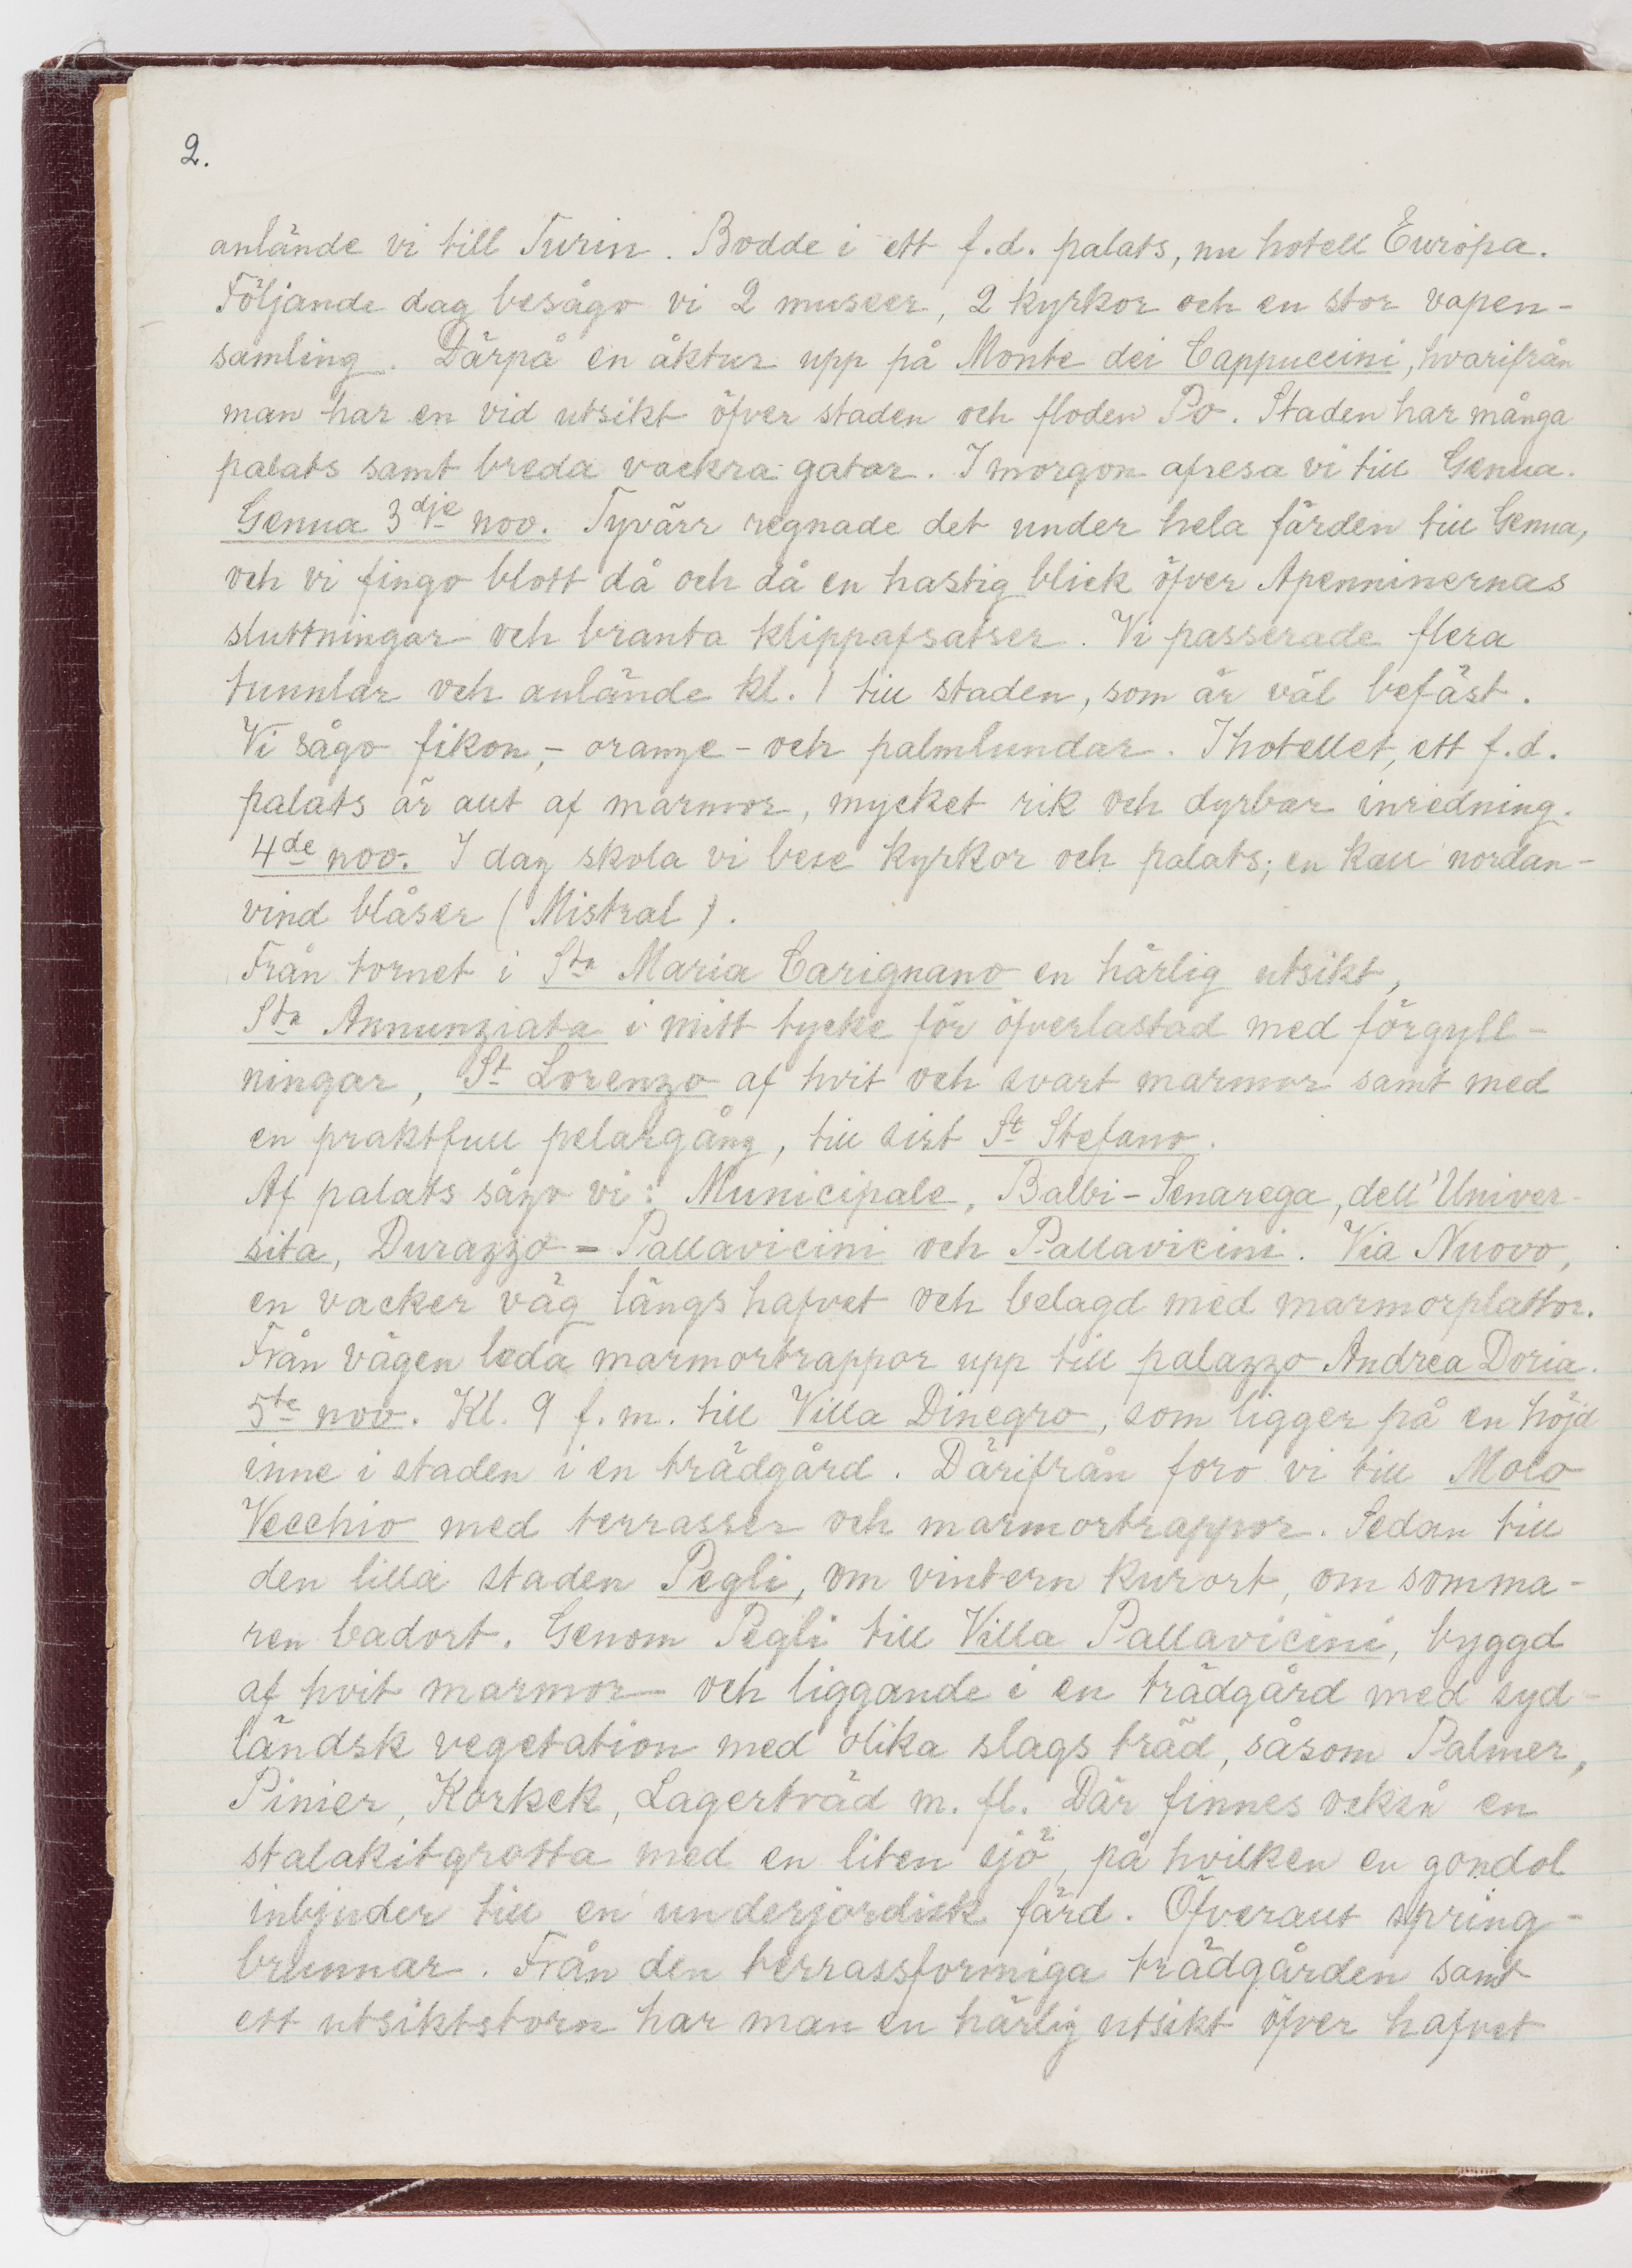 2.
anlände vi till Turin. Bodde i ett f.d. palats, nu hotell Európa.
Följande dag besågo vi 2 museer, 2 kyrkor och en stor vapen-
samling. Därpå en åktur upp på Monte dei Cappuccini, hvarifrån
man har en vid utsikt öfver staden och floden Po. Staden har många
palats samt breda vackra gator. I morgon afresa vi till Genua.
Genua 3dje nov. Tyvärr regnade det under hela färden till Genua,
och vi fingo blott då och då en hastig blick öfver Apenninernas
sluttningar och branta klippafsatser. Vi passerade flera
tunnlar och anlände kl. 1 till staden, som är väl befäst.
Vi sågo fikon,- orange- och palmlundar. I hotellet, ett f.d.
palats är allt af marmor, mycket rik och dyrbar inredning.
4de nov. I dag skola vi bese kyrkor och palats; en kall nordan-
vind blåser (Mistral).
Från tornet i Sta Maria Carignano en härlig utsikt,
Sta Annunziata i mitt tycke för öfverlastad med förgyll-
ningar, St Lorenzo af hvit och svart marmor samt med
en praktfull pelargång, till sist St Stefano.
Af palats sågo vi: Municipale, Balbi-Senarega, dell'Univer-
sita, Durazzo=Pallavicini och Pallavicini. Via Nuovo,
en vacker väg längs hafvet och belagd med marmorplattor.
Från vägen leda marmortrappor upp till palazzo Andrea Doria.
5te nov. Kl. 9 f.m. till Villa Dinegro, som ligger på en höjd
inne i staden i en trädgård. Därifrån foro vi till Molo
Vecchio med terrasser och marmortrappor. Sedan till
den lilla staden Pegli, om vintern kurort, om somma-
ren badort. Genom Pegli till Villa Pallavicini, byggd
af hvit marmor och liggande i en trädgård med syd-
ländsk vegetation med olika slags träd, såsom Palmer,
Pinier, Korkek, Lagerträd m. fl. Där finnes också en
stalakitgrotta med en liten sjö, på hvilken en gondol
inbjuder till en underjordisk färd. Öfverallt spring-
brunnar. Från den terrassformiga trädgården samt
ett utsiktstorn har man en härlig utsikt öfver hafvet